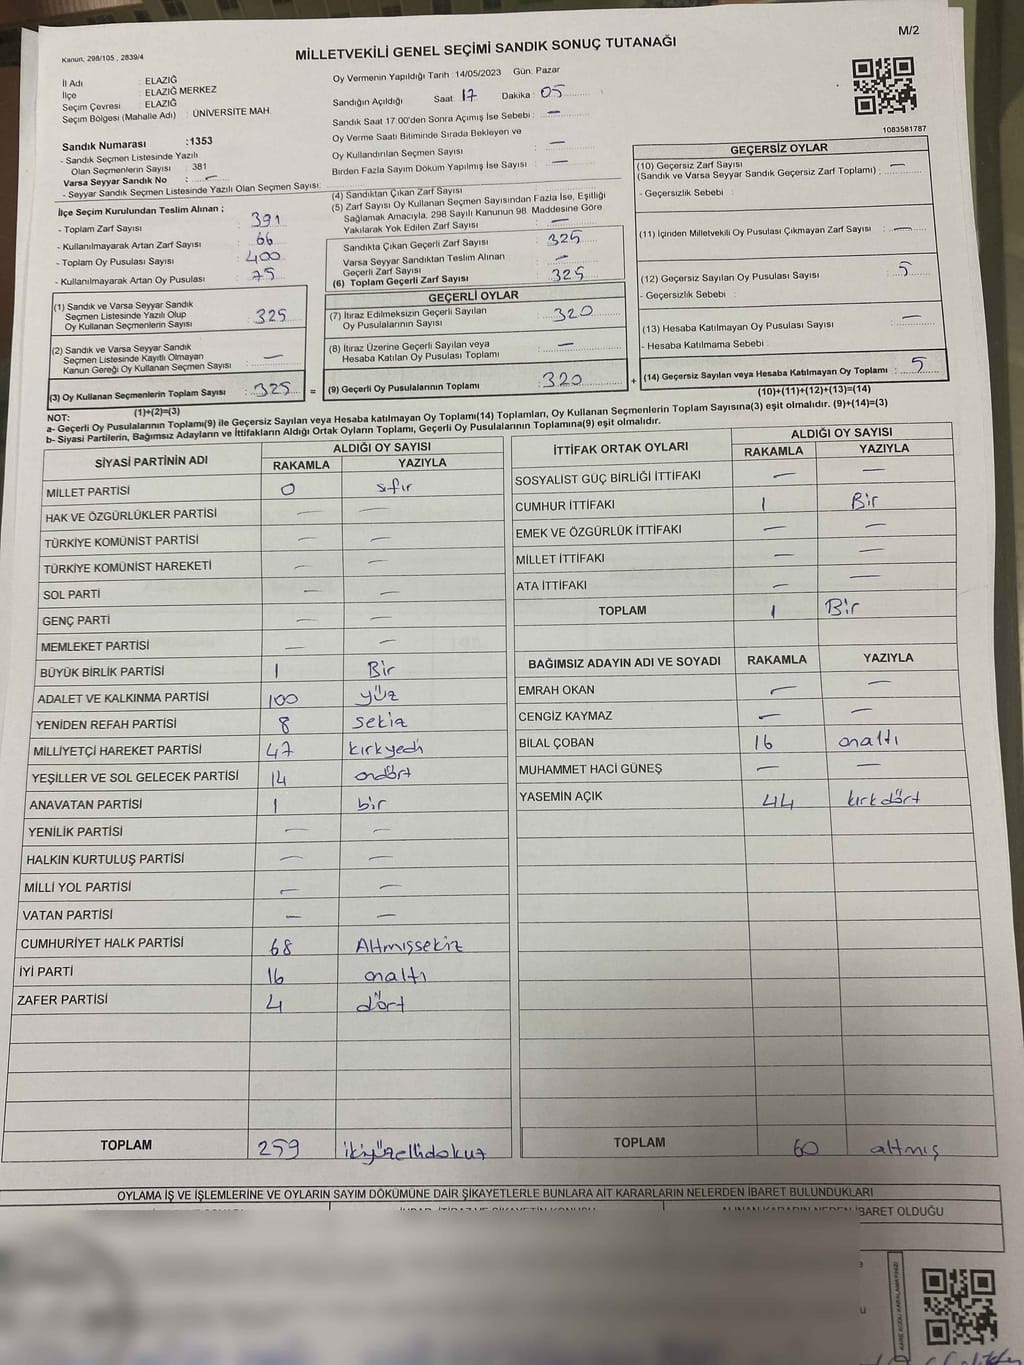 M/2
Kanun, 298/105 , 2839/4
MİLLETVEKİLİ GENEL SEÇİMİ SANDIK SONUÇ TUTANAĞI
İl Adı : ELAZIĞ
İlçe : ELAZIĞ MERKEZ
Seçim Çevresi : ELAZIĞ
Seçim Bölgesi (Mahalle Adı) : ÜNİVERSİTE MAH.
Sandık Numarası :1353
- Sandık Seçmen Listesinde Yazılı
Olan Seçmenlerin Sayısı : 381
Varsa Seyyar Sandık No : —
- Seyyar Sandık Seçmen Listesinde Yazılı Olan Seçmen Sayısı:
Oy Vermenin Yapıldığı Tarih :14/05/2023 Gün: Pazar
Sandığın Açıldığı Saat 17 Dakika : 05
Sandık Saat 17:00'den Sonra Açımış İse Sebebi : —
Oy Verme Saati Bitiminde Sırada Bekleyen ve
Oy Kullandırılan Seçmen Sayısı : —
Birden Fazla Sayım Döküm Yapılmış İse Sayısı : —
1083581787
İlçe Seçim Kurulundan Teslim Alınan ;
- Toplam Zarf Sayısı : 391
- Kullanılmayarak Artan Zarf Sayısı : 66
- Toplam Oy Pusulası Sayısı : 400
- Kullanılmayarak Artan Oy Pusulası : 75
(1) Sandık ve Varsa Seyyar Sandık
Seçmen Listesinde Yazılı Olup
Oy Kullanan Seçmenlerin Sayısı : 325
(2) Sandık ve Varsa Seyyar Sandık
Seçmen Listesinde Kayıtlı Olmayan
Kanun Gereği Oy Kullanan Seçmen Sayısı : —
(3) Oy Kullanan Seçmenlerin Toplam Sayısı : 325 =
(1)+(2)=(3)
(4) Sandıktan Çıkan Zarf Sayısı :
(5) Zarf Sayısı Oy Kullanan Seçmen Sayısından Fazla İse, Eşitliği
Sağlamak Amacıyla, 298 Sayılı Kanunun 98. Maddesine Göre
Yakılarak Yok Edilen Zarf Sayısı : —
Sandıkta Çıkan Geçerli Zarf Sayısı : 325
Varsa Seyyar Sandıktan Teslim Alınan
Geçerli Zarf Sayısı : —
(6) Toplam Geçerli Zarf Sayısı : 325
GEÇERLİ OYLAR
(7) İtiraz Edilmeksizin Geçerli Sayılan
Oy Pusulalarının Sayısı : 320
(8) İtiraz Üzerine Geçerli Sayılan veya
Hesaba Katılan Oy Pusulası Toplamı : —
(9) Geçerli Oy Pusulalarının Toplamı : 320 +
GEÇERSİZ OYLAR
(10) Geçersiz Zarf Sayısı : —
(Sandık ve Varsa Seyyar Sandık Geçersiz Zarf Toplamı) :
- Geçersizlik Sebebi :
(11) İçinden Milletvekili Oy Pusulası Çıkmayan Zarf Sayısı : —
(12) Geçersiz Sayılan Oy Pusulası Sayısı : 5
- Geçersizlik Sebebi :
(13) Hesaba Katılmayan Oy Pusulası Sayısı : —
- Hesaba Katılmama Sebebi :
(14) Geçersiz Sayılan veya Hesaba Katılmayan Oy Toplamı : 5
(10)+(11)+(12)+(13)=(14)
NOT:
a- Geçerli Oy Pusulalarının Toplamı(9) ile Geçersiz Sayılan veya Hesaba katılmayan Oy Toplamı(14) Toplamları, Oy Kullanan Seçmenlerin Toplam Sayısına(3) eşit olmalıdır. (9)+(14)=(3)
b- Siyasi Partilerin, Bağımsız Adayların ve İttifakların Aldığı Ortak Oyların Toplamı, Geçerli Oy Pusulalarının Toplamına(9) eşit olmalıdır.
SİYASİ PARTİNİN ADI ALDIĞI OY SAYISI
RAKAMLA YAZIYLA
MİLLET PARTİSİ 0 sıfır
HAK VE ÖZGÜRLÜKLER PARTİSİ — —
TÜRKİYE KOMÜNİST PARTİSİ — —
TÜRKİYE KOMÜNİST HAREKETİ — —
SOL PARTİ — —
GENÇ PARTİ — —
MEMLEKET PARTİSİ — —
BÜYÜK BİRLİK PARTİSİ 1 Bir
ADALET VE KALKINMA PARTİSİ 100 yüz
YENİDEN REFAH PARTİSİ 8 sekiz
MİLLİYETÇİ HAREKET PARTİSİ 47 kırkyedi
YEŞİLLER VE SOL GELECEK PARTİSİ 14 ondört
ANAVATAN PARTİSİ 1 bir
YENİLİK PARTİSİ — —
HALKIN KURTULUŞ PARTİSİ — —
MİLLİ YOL PARTİSİ — —
VATAN PARTİSİ — —
CUMHURİYET HALK PARTİSİ 68 Altmışsekiz
İYİ PARTİ 16 onaltı
ZAFER PARTİSİ 4 dört
TOPLAM 259 ikiyüzellidokuz
İTTİFAK ORTAK OYLARI ALDIĞI OY SAYISI
RAKAMLA YAZIYLA
SOSYALİST GÜÇ BİRLİĞİ İTTİFAKI — —
CUMHUR İTTİFAKI 1 Bir
EMEK VE ÖZGÜRLÜK İTTİFAKI — —
MİLLET İTTİFAKI — —
ATA İTTİFAKI — —
TOPLAM 1 Bir
BAĞIMSIZ ADAYIN ADI VE SOYADI RAKAMLA YAZIYLA
EMRAH OKAN — —
CENGİZ KAYMAZ — —
BİLAL ÇOBAN 16 onaltı
MUHAMMET HACİ GÜNEŞ — —
YASEMIN AÇIK 44 kırkdört
TOPLAM 60 altmış
OYLAMA İŞ VE İŞLEMLERİNE VE OYLARIN SAYIM DÖKÜMÜNE DAİR ŞİKAYETLERLE BUNLARA AİT KARARLARIN NELERDEN İBARET BULUNDUKLARI
İBARET OLDUĞU